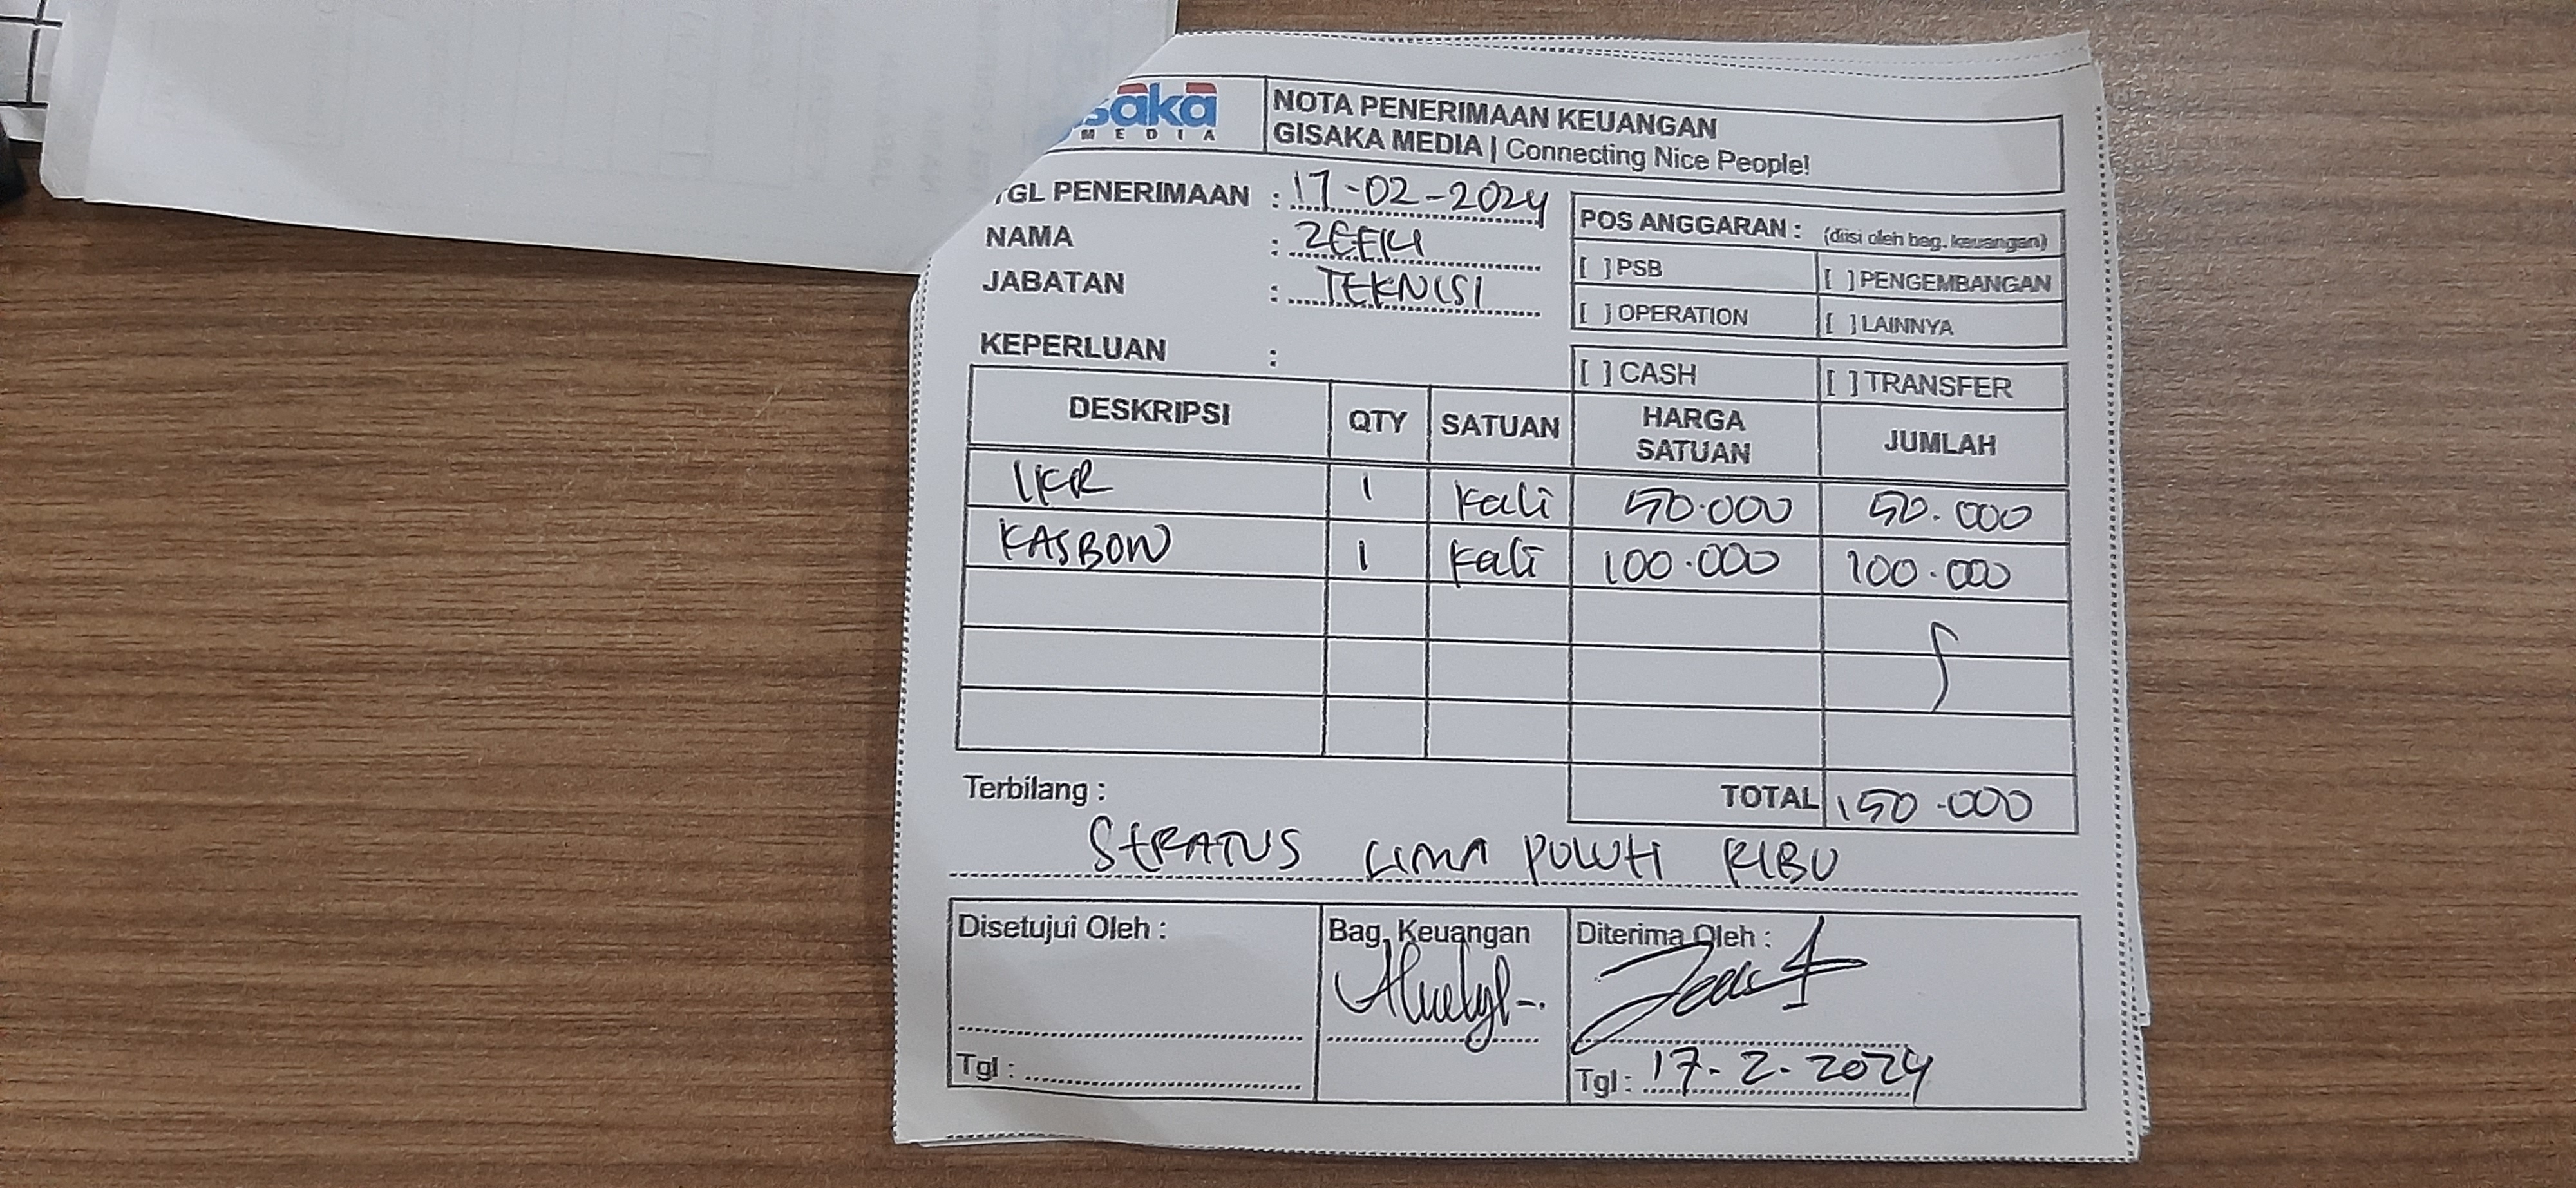 saka
MEDIA
NOTA PENERIMAAN KEUANGAN
GISAKA MEDIA | Connecting Nice People!
TGL PENERIMAAN : 17-02-2024
NAMA :
JABATAN : TEKNISI
KEPERLUAN :
POS ANGGARAN : (diisi oleh bag. keuangan)
[ ] PSB [ ] PENGEMBANGAN
[ ] OPERATION [ ] LAINNYA
[ ] CASH [ ] TRANSFER
DESKRIPSI QTY SATUAN HARGA SATUAN JUMLAH
IKR 1 kali 50.000 50.000
KASBON 1 kali 100.000 100.000
TOTAL 150.000
Terbilang :
SERATUS LIMA PULUH RIBU
Disetujui Oleh : Bag. Keuangan Diterima Oleh :
Tgl : Tgl : 17-2-2024